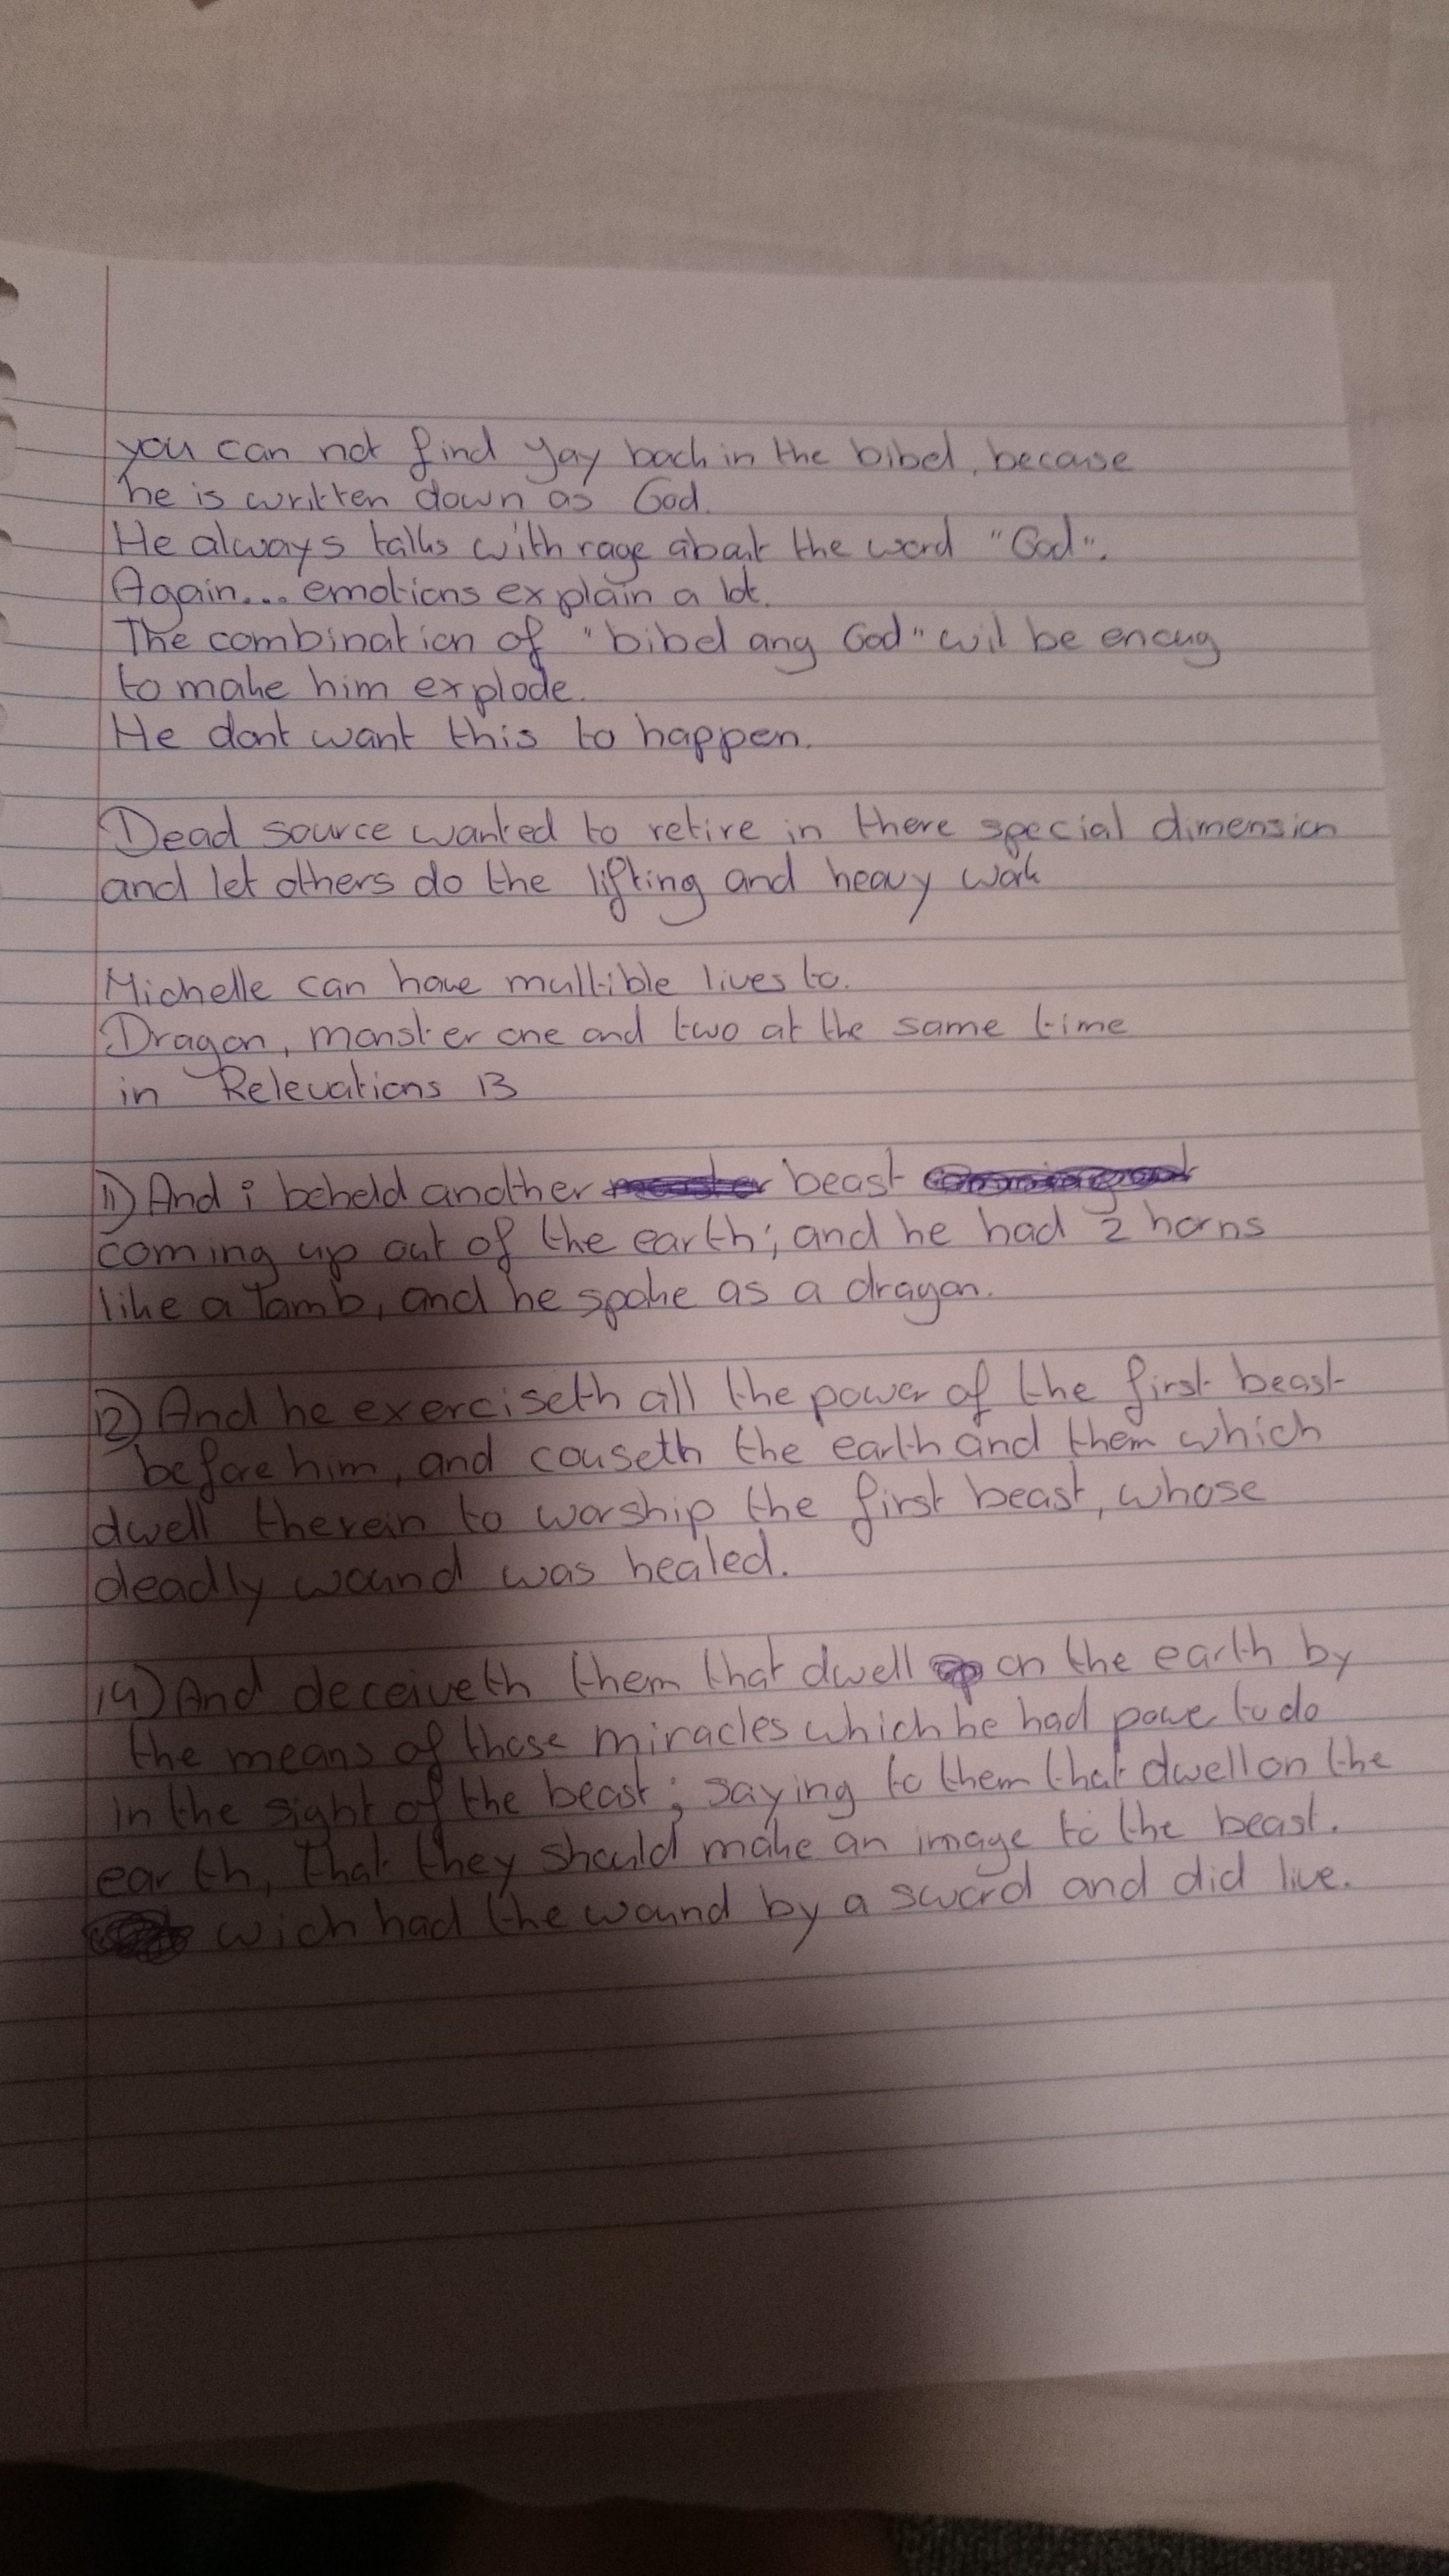 you can not find Yay back in the bibel, because
he is written down as God.
He always talks with rage about the word "God".
Again... emotions explain a lot.
The combination of "bibel ang God" wil be enoug
to make him explode.
He dont want this to happen.
Dead source wanted to retire in there special dimension
and let others do the lifting and heavy work
Michelle can have multible lives to.
Dragon, monster one and two at the same time
in Relevations 13
11) And i beheld another beast
coming up out of the earth; and he had 2 horns
like a lamb, and he spoke as a dragon.
12) And he exerciseth all the power of the first beast
before him, and causeth the earth and them which
dwell therein to worship the first beast, whose
deadly wound was healed.
14) And deceiveth them that dwell on the earth by
the means of those miracles which he had powe to do
in the sight of the beast; saying to them that dwell on the
earth, that they should make an image to the beast.
wich had the wound by a sword and did live.